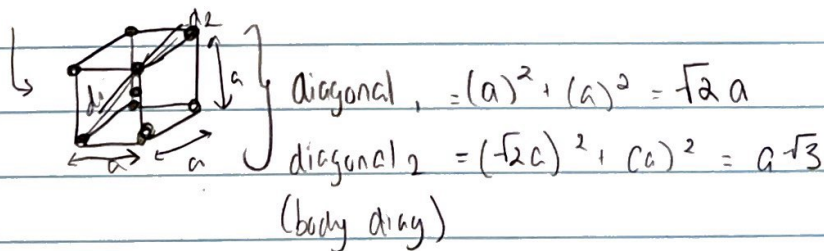 d2
a
d1
a
a
diagonal 1 = (a)² + (a)² = √2 a
diagonal 2 = (√2a)² + (a)² = a√3
(body diag)